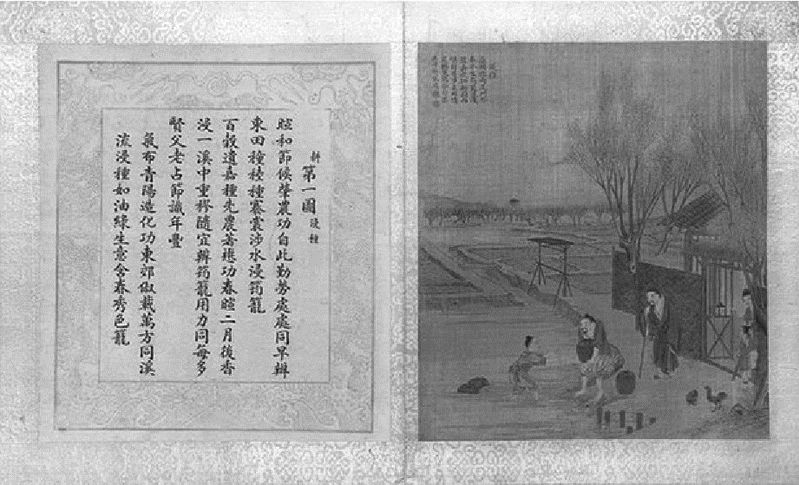 耕第一圖浸種
暄和節候肇農功自此勤勞處處同早辦
東田穜稑種褰裳涉水浸筠籠
百穀遺嘉種先農著懋功春暄二月後香
浸一溪中重穋隨宜辦筠籠用力同每多
賢父老占節識年豐
氣布青陽造化功東郊俶載萬方同溪
流浸種如油綠生意含春秀色籠